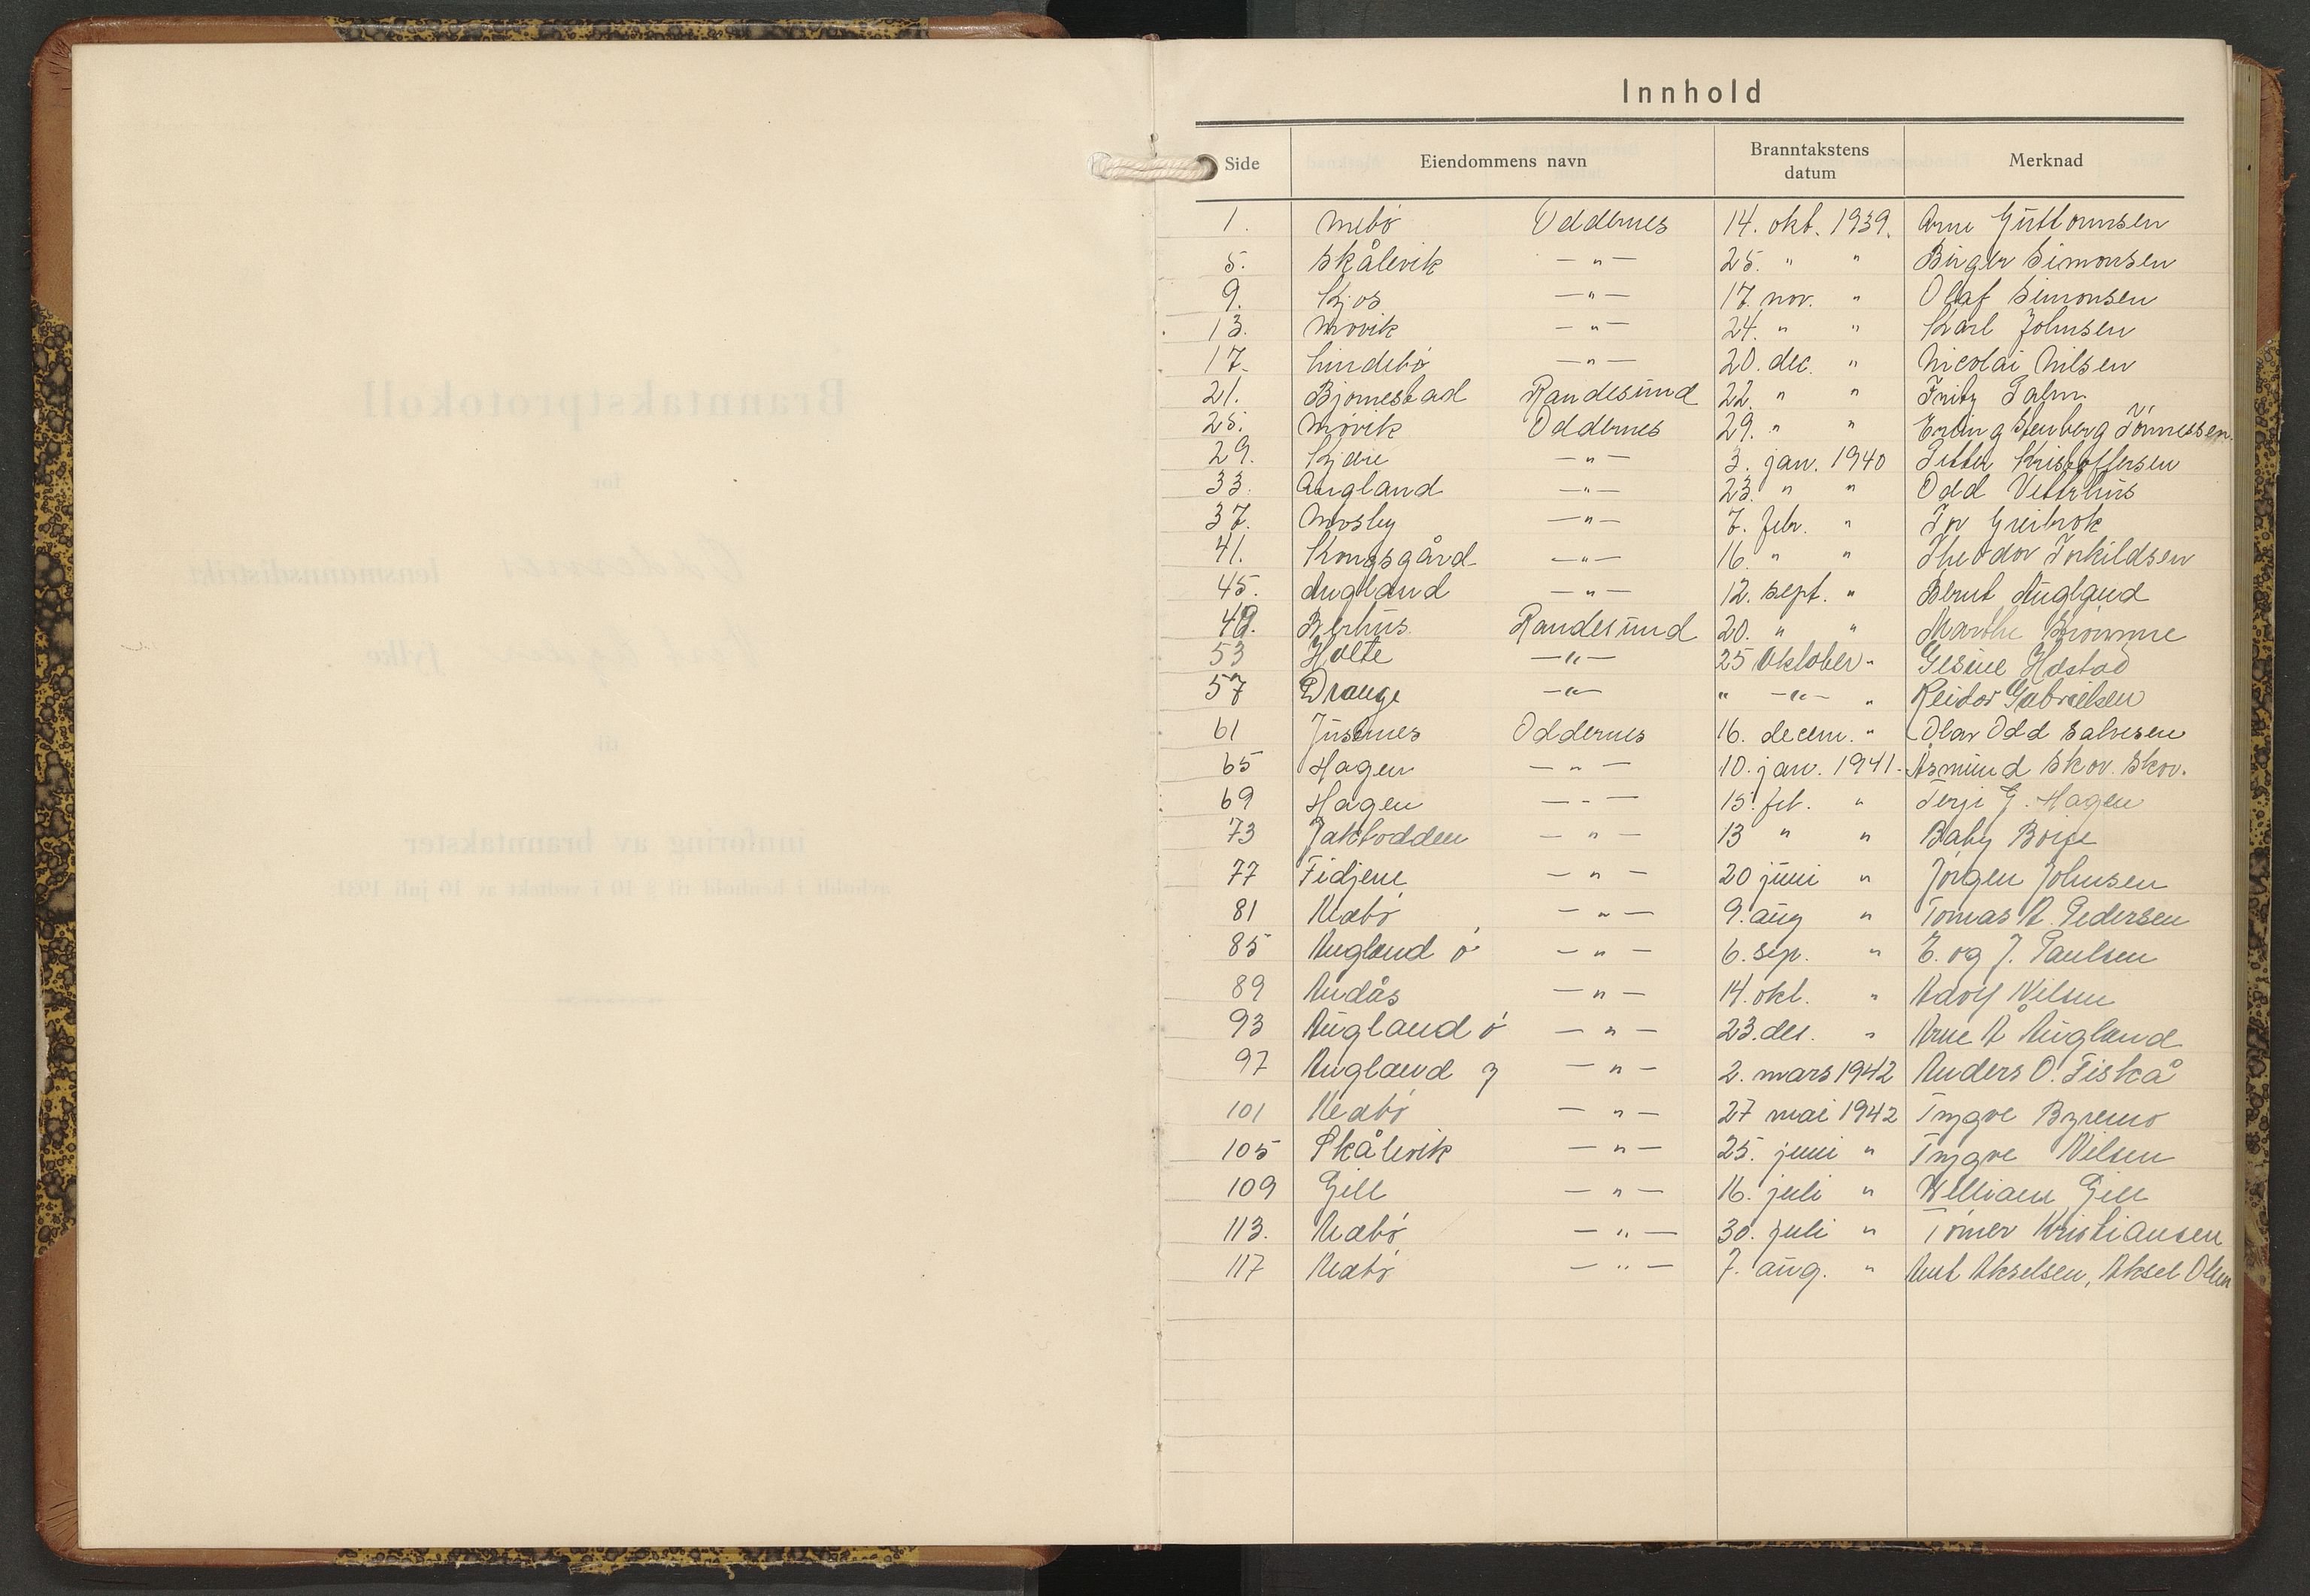 Innhold
Side Eiendommens navn Branntakstens datum Merknad
1. Oddernes 14. okt. 1939. Arne Guttormsen
5. Skålevik —"— 25. " " Birger Simonsen
9. Kjos —"— 17. nov. " Olaf Simonsen
13. Movik —"— 24. " " Karl Johnsen
17. Lindebø —"— 20. dec. " Nicolai Nilsen
21. Bjørnestad Randesund 22. " " Fritz
25. Movik Oddernes 29. " " Erling Stenberg Tönnessen.
29. —"— 3. jan. 1940 Petter Kristoffersen
33. Augland —"— 23. " " Odd Vetrhus
37. Mosby —"— 7. febr. " Greibrok
41. Kongsgård —"— 16. " " Theodor Torkildsen
45. Augland —"— 12. sept. " Bernt Augland
49. Randesund 20. " " Marthe
53 Holte —"— 25 Oktober "
57 Drange —"— " —"— " Reidar Gabrielsen
61 Justnes Oddernes 16. decem. " Olav Odd Salvesen
65 Hagen —"— 10. jan. 1941. Åsmund Skov. Skov.
69 Hagen —"— 15. feb. " Terje G. Hagen
73 —"— 13 " "
77 Fidjene —"— 20 juni " Jörgen Johnsen
81 Nedbø —"— 9. aug " Tomas A. Pedersen
85 Augland ø —"— 6. sep. " E. og J. Paulsen
89 Andås —"— 14. okt. " Adolf Nilsen
93 Augland ø —"— 23. des. " Arne A Augland
97 Augland —"— 2. mars 1942 Anders O. Fiskå
101 —"— 27 mai 1942 Trygve Byremo
105 Skålevik —"— 25. juni " Trygve Nilsen
109 Gill —"— 16. juli " William Gill
113. —"— 30. juli " Kristiansen
117 —"— 7. aug. " Akselsen, Aksel Olsen